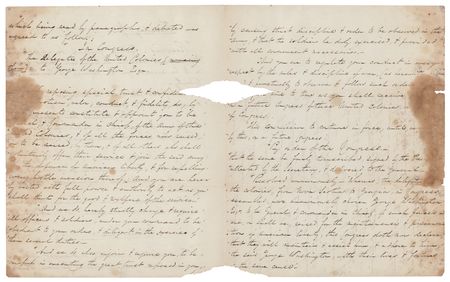 which being read by paragraphs, & debated was
agreed to as follows,
In Congress,
The delegates of the United Colonies of
to George Washington Esqr.
reposing special trust & confidence
valor, conduct & fidelity do, by
constitute & appoint you to be
Commander in Chief of the army of the
Colonies, & of all the forces now raised, or
to be raised, by them, & of all others who shall
voluntarily offer their services & join the said army
for the defence of American liberty, & for repelling
every hostile invasion thereof: And you are hereby
vested with full power & authority to act as you
shall think for the good & welfare of the service.
And we do hereby strictly charge & require
all officers & soldiers under your command to be
obedient to your orders, & diligent in the exercise of
their several duties.
And we do also enjoin & require you, to be
careful in executing the great trust reposed in you,
by causing strict discipline & order to be observed in the
army, & that the soldiers be duly exercised & provided
with all convenient necessaries.
And you are to regulate your conduct in every
respect by the rules & discipline of war,
punctually to observe & follow such orders
you shall receive
or a future Congress of these United Colonies, or
of Congress.
This commission to continue in force, until
by this, or a future Congress.
By order of the Congress
That the same be fairly transcribed, signed by the
attested by the secretary, & delivered to the general.
the delegates of
the colonies, from Nova Scotia to Georgia, in Congress
assembled, have unanimously chosen George Washington
Esqr. to be general & commander in chief, of such forces as
are, or shall be, raised for the maintenance & preservation
of American liberty; this Congress doth now declare,
that they will maintain & assist him, & adhere to him,
the said George Washington, with their lives & fortunes
in the same cause.